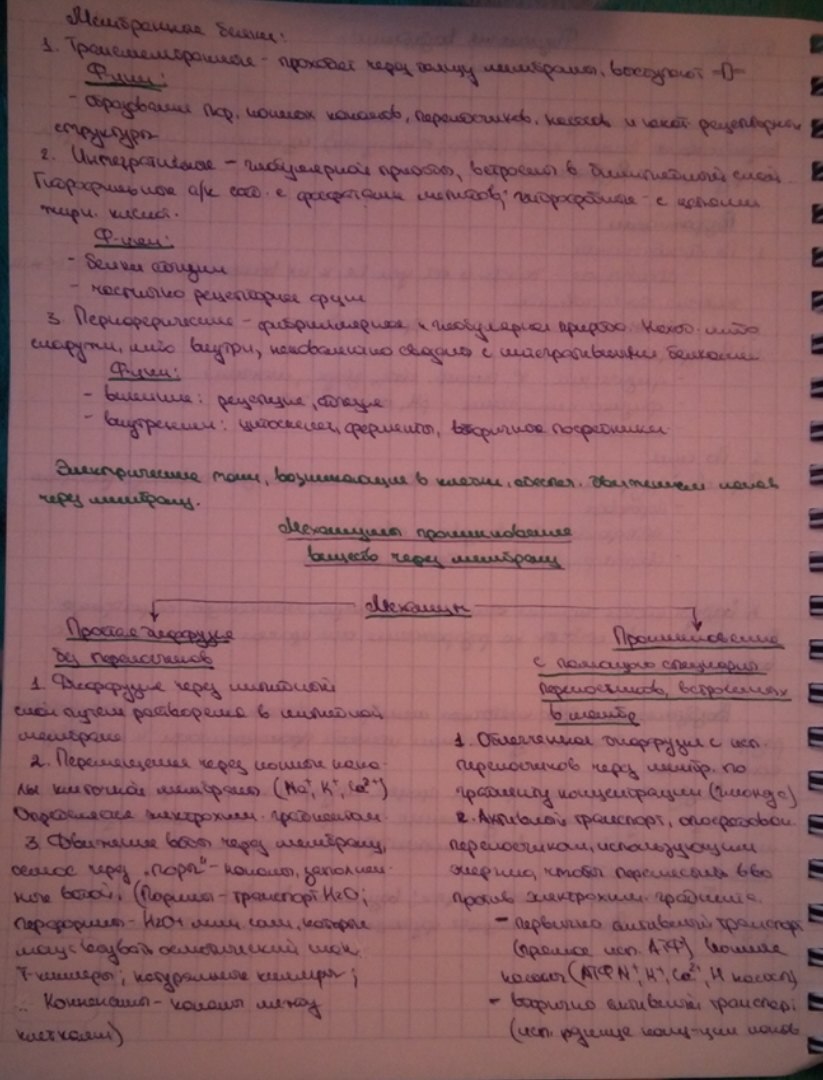 Мембранные белки:
1. Трансмембранные - проходят через толщу мембраны, выступают
Ф-ции:
- образование пор, ионных каналов, переносчиков, насосов и некот. рецепторных
структуры
2. Интегративные - глобулярной природы, встроены в билипидный слой
Гидрофильные а/к соед. с фосфатами липидов; гидрофобные - с цепями
жирн. кислот.
Ф-ции:
- белки адгезии
- частично рецепторная функция
3. Периферические - фибриллярной и глобулярной природы. Наход. либо
снаружи, либо внутри, нековалентно связаны с интегративными белками
Ф-ции:
- внешние: рецепция, адгезия
- внутренние: цитоскелет, ферменты, вторичные посредники
Электрические токи, возникающие в клетки, обеспеч. движением ионов
через мембрану.
Механизмы проникновения
веществ через мембрану
Механизм
Простая диффузия
без переносчиков
1. Диффузия через липидной
слой путем растворения в липидной
мембране
2. Перемещение через ионные кана-
лы клеточной мембраны (Na⁺, K⁺, Ca²⁺)
Определяется электрохим. градиентом
3. Движение воды через мембрану,
осмос через "поры" - каналы, заполнен-
ные водой. (Порины - транспорт H₂O;
перфорины - H₂O + или соли, которые
могут вызвать осмотический шок,
Т-киллеры; натуральные киллеры;
Коннексины - каналы между
клетками)
Проникновение
с помощью специальн.
переносчиков, встроенных
в мембр
1. Облегченная диффузия с исп.
переносчиков через мембр. по
градиенту концентрации (глюкоза)
2. Активный транспорт, опосредован.
переносчиком, использующим
энергию, чтобы переместить в-во
против электрохим. градиента
- первично активный транспорт
(прямое исп. АТФ) (ионные
насосы K⁺, Ca²⁺, H насосы)
- вторично активный транспорт
(исп. разнице конц-ции ионов